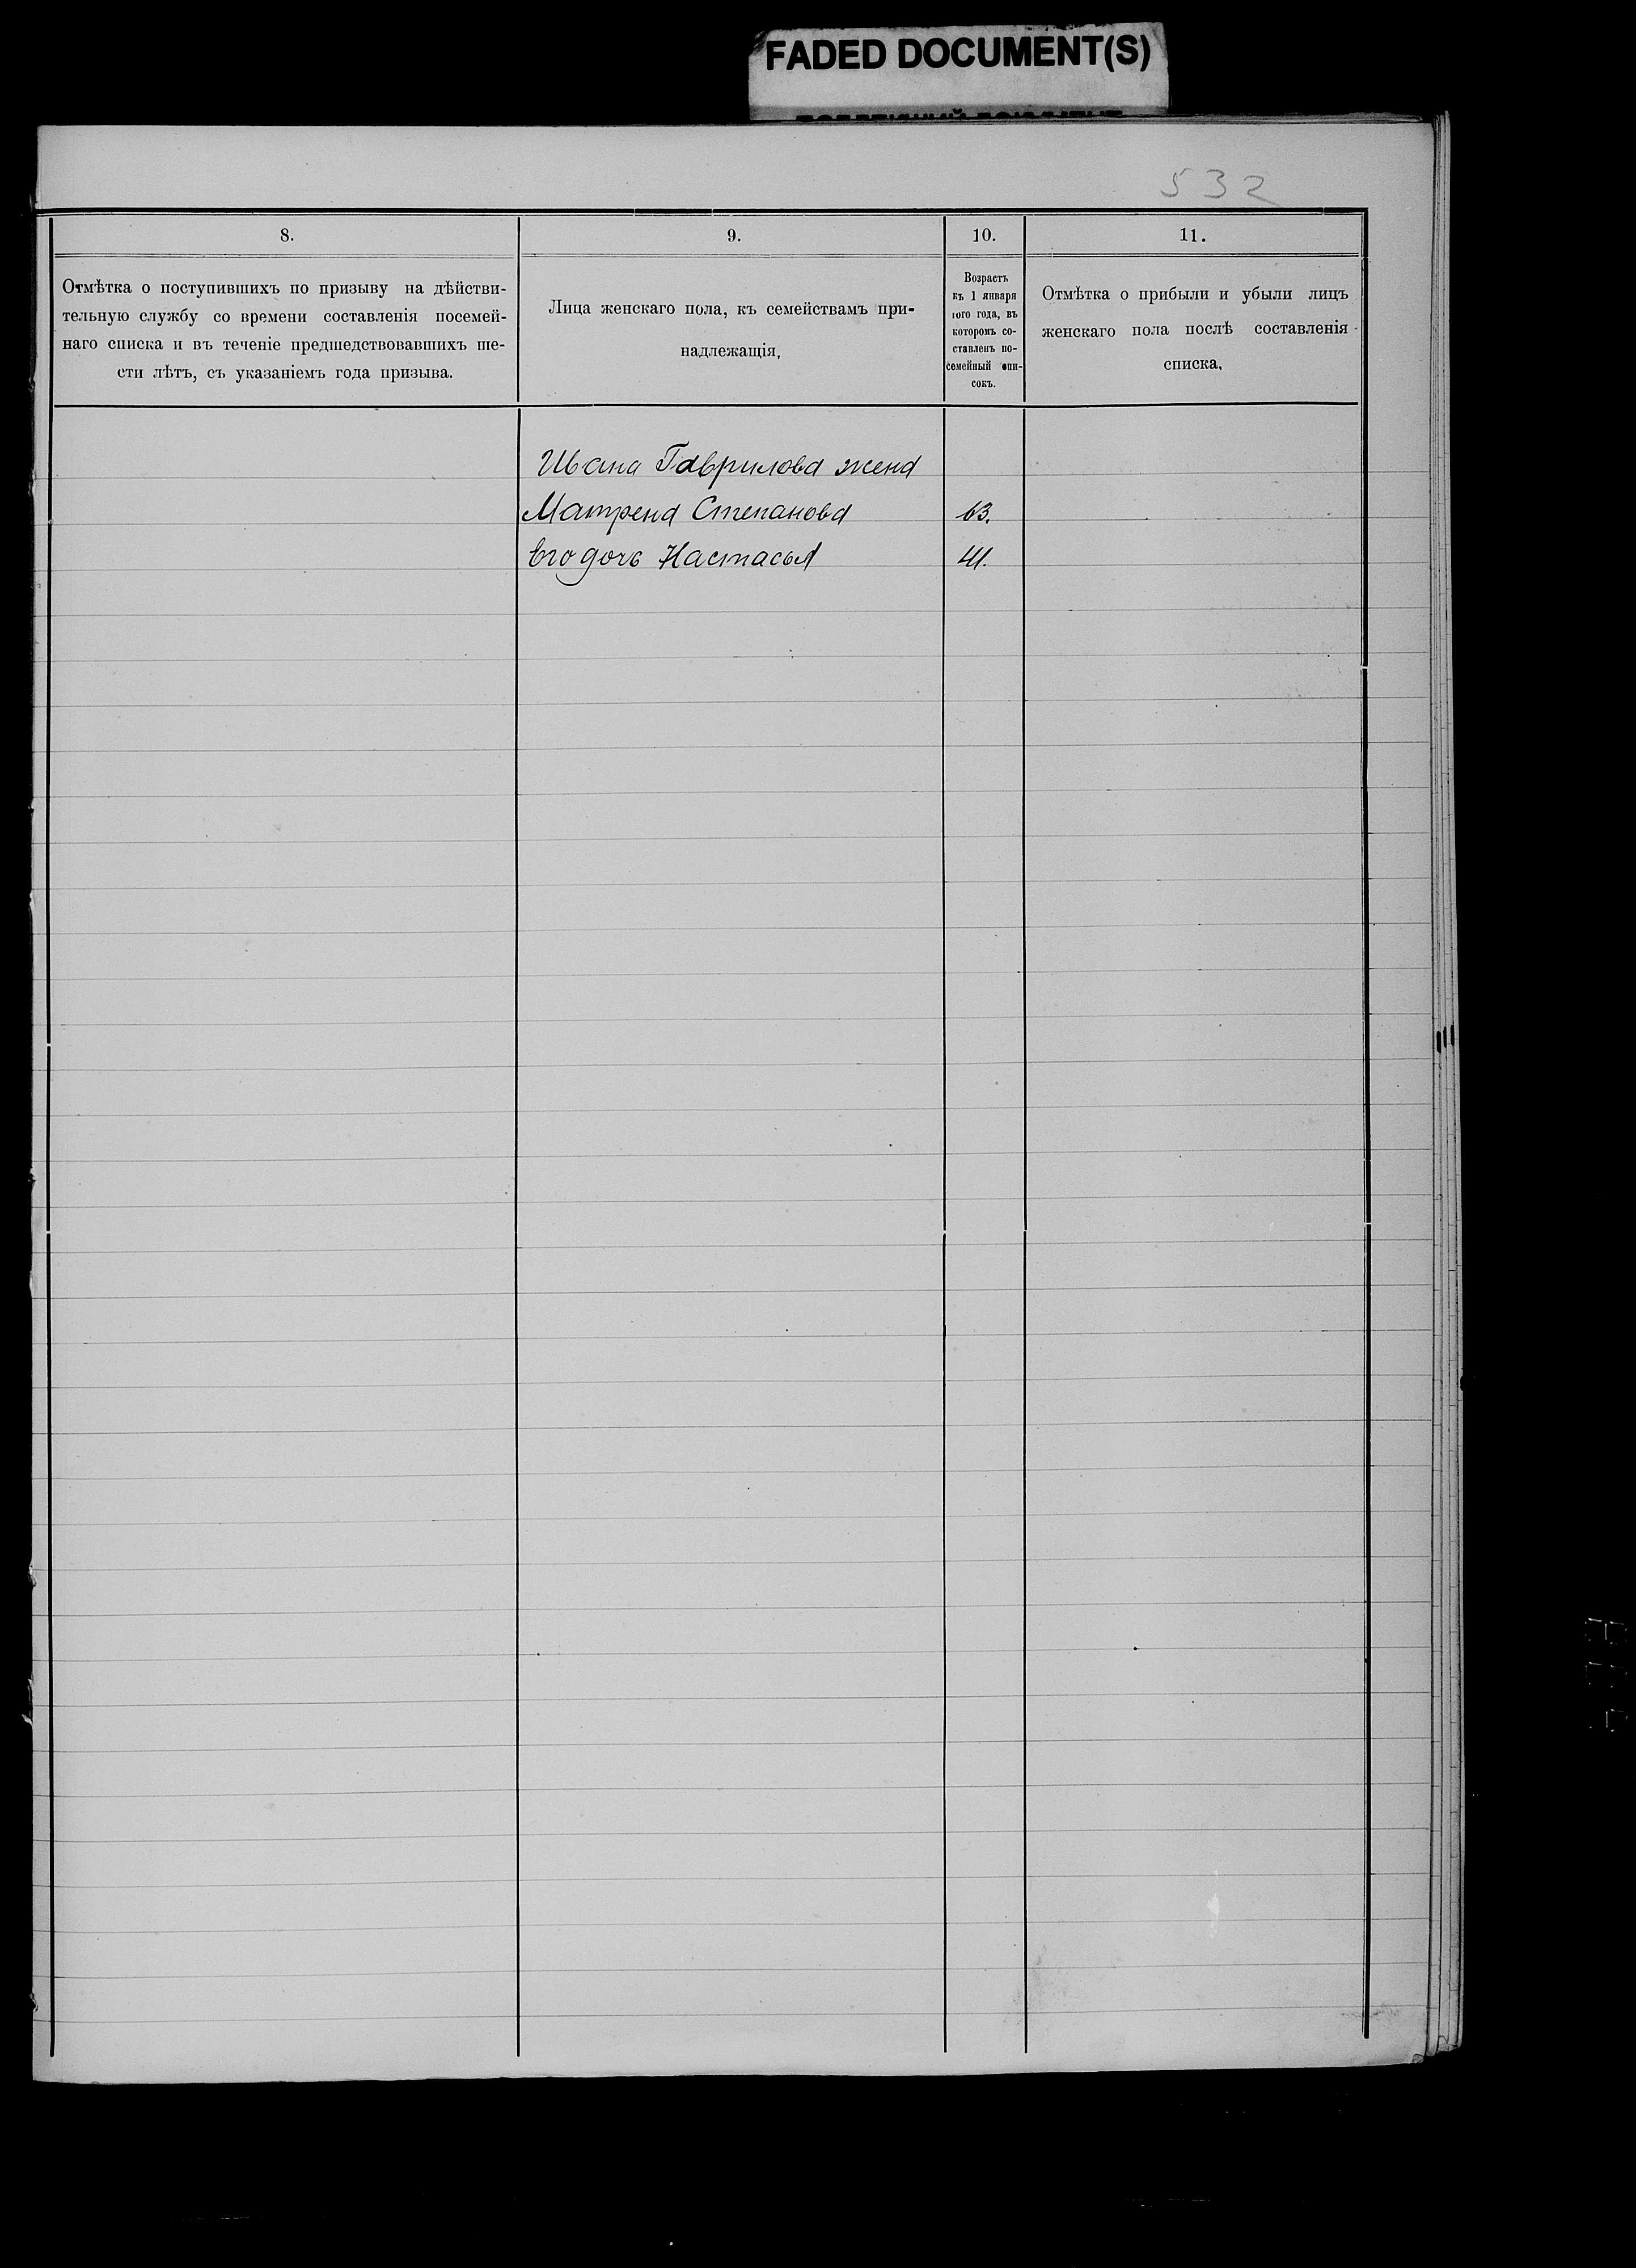 FADED DOCUMENT(S)
532
8.
Отмѣтка о поступившихъ по призыву на дѣйстви-
тельную службу со времени составленія посемей-
наго списка и въ теченіе предшедствовавшихъ ше-
сти лѣтъ, съ указаніемъ года призыва.
9.
Лица женскаго пола, къ семействамъ при-
надлежащія,
10.
Возрастъ
къ 1 января
того года, въ
которомъ со-
ставленъ по-
семейный спи-
сокъ.
11.
Отмѣтка о прибыли и убыли лицъ
женскаго пола послѣ составленія
списка,
Ивана Гаврилова жена
Матрена Степанова 63.
Его дочь Настасья 41.